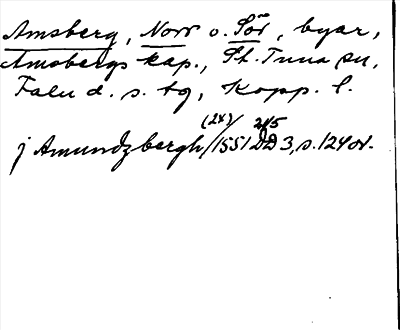 Amsberg, Norr o. Sör, byar,
Amsbergs kap., St. Tuna sn,
Falu d. s. tg, Kopp. l.
(2x) 2/5
j Amundzbergh/1551 DD 3, s. 124 ov.